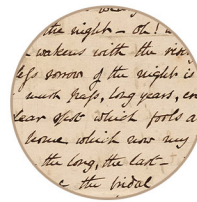 the night – oh!
wakens with the
less sorrow of the night is
must pass, long years,
spot which fools a
home which now my
the long, the last –
the bridal